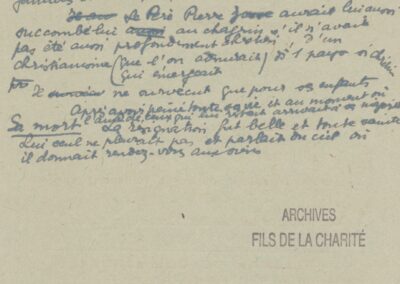 Le Père Pierre aurait lui aussi
succombé lui au chagrin s'il n'avait
pas été aussi profondément chrétien D'un
christianisme (que l'on admirait) si
(qui émergeait
ne survécut que pour ses enfants
Après avoir peiné toute sa vie et au moment où
Sa mort l'un de ceux qui
La résignation fut belle et toute sainte
Lui seul ne pleurait pas et parlait du ciel où
il donnait rendez-vous aux siens
ARCHIVES
FILS DE LA CHARITÉ